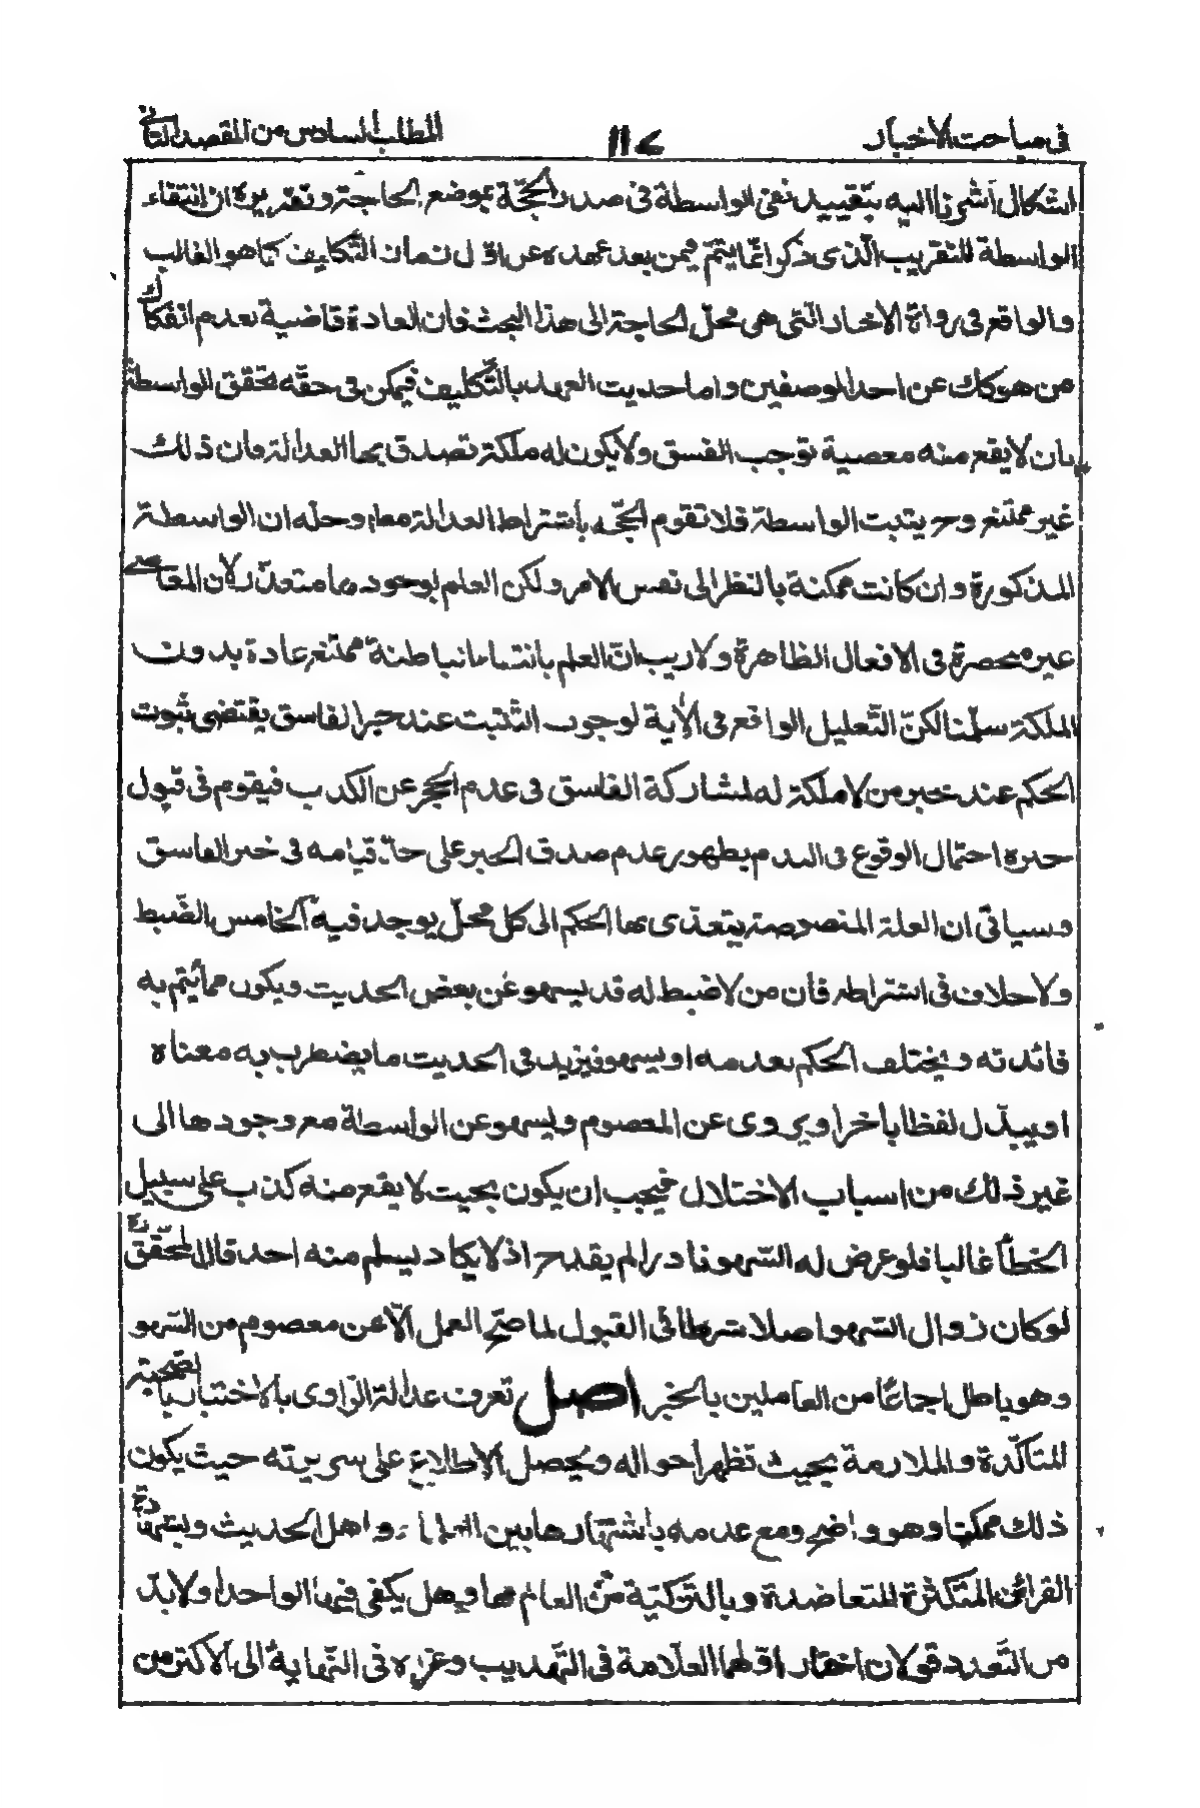 في مباحث الاخبار ١١٤ المطلب السادس من المقصد الثاني
اشكال اشرنا اليه بتقييد نفى الواسطة فى صدر الحجّة بموضع الحاجة وتقريره ان انتفاء
الواسطة للتقريب الّذى ذكر انّما يتمّ فيمن بعد عهده عن اوّل زمان التّكليف كما هو الغالب
والواقع فى رواة الاخبار الّتى هى محلّ الحاجة الى هذا البحث فان العادة قاضية بعدم انفكاك
من هو كك عن احد الوصفين واما حديث العهد بالتّكليف فيمكن فى حقّه تحقق الواسطة
بان لا يقع منه معصية توجب الفسق ولا يكون له ملكة تصدق بها العدالة فان ذلك
غير ممتنع وح يثبت الواسطة فلا تقوم الحجّة باشتراط العدالة معها وحلّه ان الواسطة
المذكورة وان كانت ممكنة بالنظر الى نفس الامر ولكن العلم بوجودها متعذّر لان المعاصى
غير منحصرة فى الافعال الظاهرة ولا ريب انّ العلم بانتفاء الباطنة ممتنع عادة بدون
الملكة سلّمنا لكنّ التّعليل الواقع فى الآية لوجوب التّثبت عند خبر الفاسق يقتضى ثبوت
الحكم عند خبر من لا ملكة له لمشاركة الفاسق فى عدم الحجر عن الكذب فيقوم فى قبول
خبره احتمال الوقوع فى الندم بظهور عدم صدق الخبر على حدّ قيامه فى خبر الفاسق
وسياتى ان العلة المنصوصة يتعدّى بها الحكم الى كل محلّ يوجد فيه الخامس الضّبط
ولا خلاف فى اشتراطه فان من لا ضبط له قد يسهو عن بعض الحديث ويكون مما يتم به
فائدته ويختلف الحكم بعدمه او يسهو فيزيد فى الحديث ما يضطرب به معناه
او يبدّل لفظا بآخر او يروى عن المعصوم ويسهو عن الواسطة مع وجودها الى
غير ذلك من اسباب الاختلال فيجب ان يكون بحيث لا يقع منه كذب على سبيل
الخطأ غالبا فلو عرض له السّهو نادرا لم يقدح اذ لا يكاد يسلم منه احد قال المحقّق ره
لو كان زوال السّهو اصلا شرطا فى القبول لما صحّ العمل الّا عن معصوم من السّهو
وهو باطل اجماعًا من العاملين بالخبر اصل تعرف عدالة الرّاوى بالاختبار بالصّحبة
المتأكّدة والملازمة بحيث تظهر أحواله ويحصل الاطلاع على سريرته حيث يكون
ذلك ممكنا وهو واضح ومع عدمه باشتهارها بين العلماء واهل الحديث وبشهادة
القرائن المتكثّرة المتعاضدة وبالتّزكية من العالم بها وهل يكفى فيها الواحد او لا بدّ
من التّعدد قولان اختار اوّلهما العلّامة فى التّهذيب وعزاه فى النّهاية الى الاكثر من